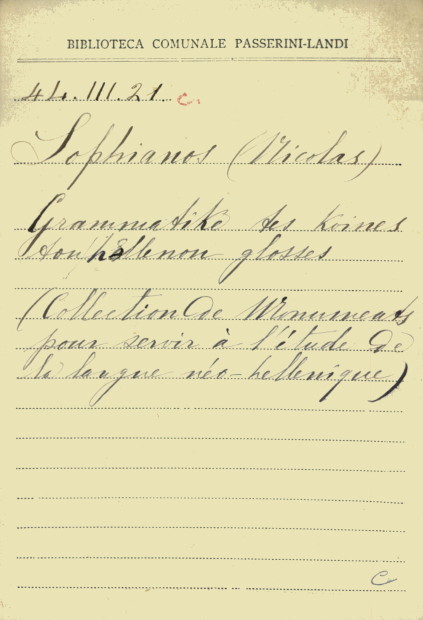 BIBLIOTECA COMUNALE PASSERINI-LANDI
44.III.21. C.
Sophianos (Nicolas)
Grammatikè tes koines
ton hellenon glosses
(Collection de Monuments
pour servir à l'étude de
la langue néo-hellenique)
C